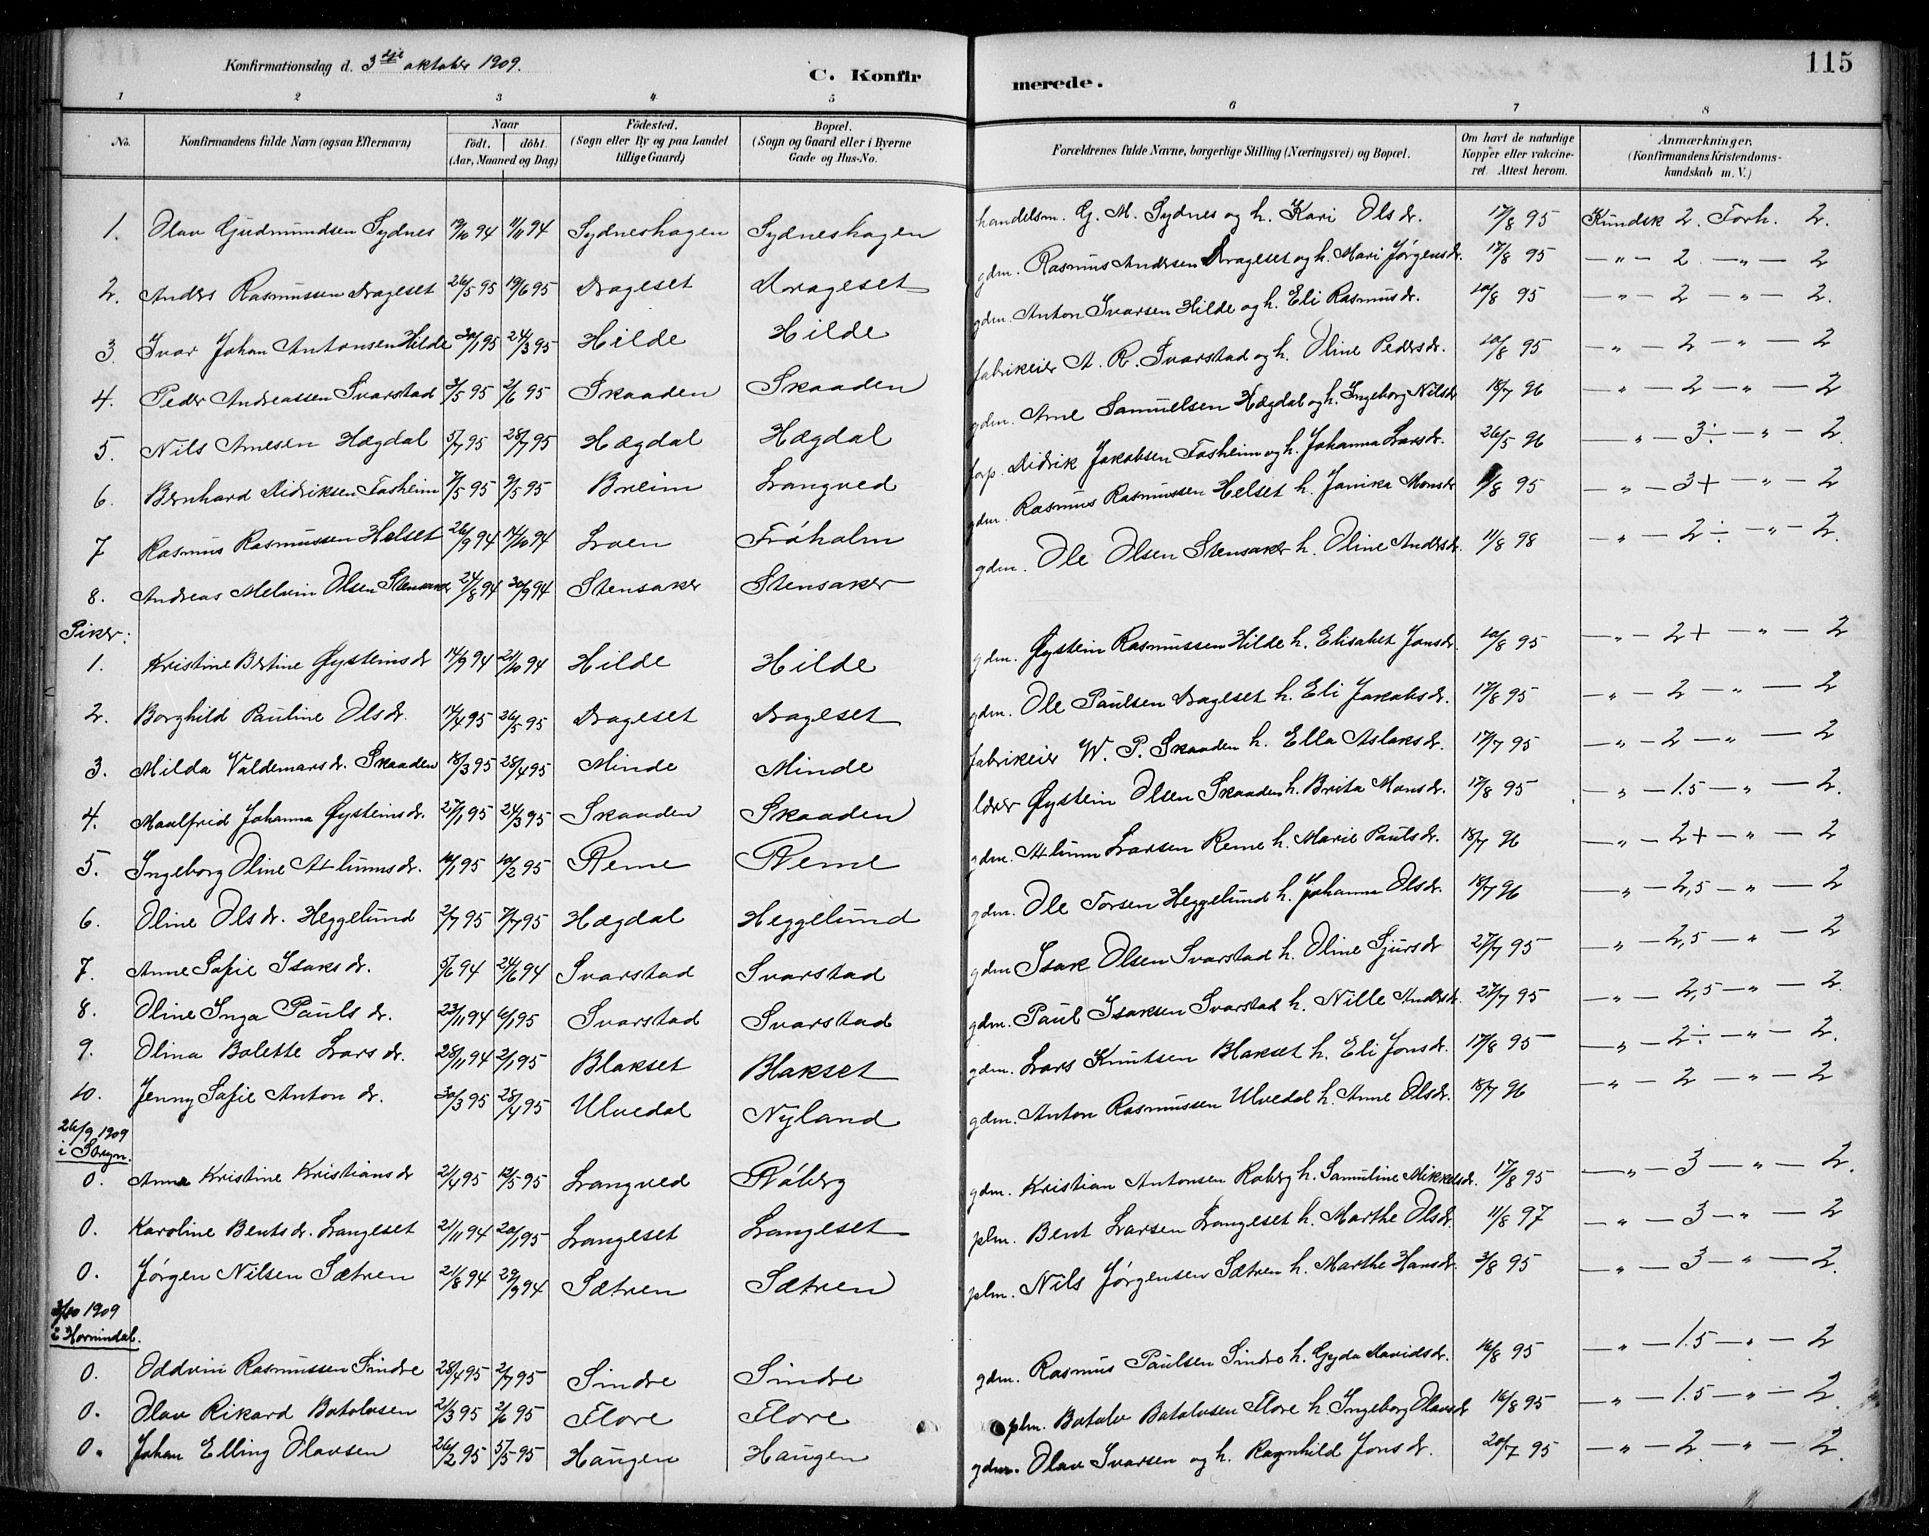 115
Konfirmationsdag d. 3dje oktober 1909.
C. Konfirmerede.
1 2 3 4 5 6 7 8
No. | Konfirmandens fulde Navn (ogsaa Efternavn) | Naar født. døbt. (Aar, Maaned og Dag) | Fødested. (Sogn eller By og paa Landet tillige Gaard) | Bopæl. (Sogn og Gaard eller i Byerne Gade og Hus-No. | Forældrenes fulde Navne, borgerlige Stilling (Næringsvei) og Bopæl. | Om havt de naturlige Kopper eller vakcineret. Attest herom. | Anmærkninger, (Konfirmandens Kristendomskundskab m. V.)
1. Olav Gudmundsen Sydnes 19/10 94 1/11 94 Sydneshagen Sydneshagen handelsm. G. M. Sydnes og h. Kari Olsdr. 17/8 95 Kundsk 2. Forh. 2.
2. Anders Rasmussen Drageset 26/5 95 19/6 95 Drageset Drageset gdm. Rasmus Andersen Drageset og h. Mari Jørgensdr. 17/8 95 — „ — 2 — „ — 2
3. Ivar Johan Antonsen Hilde 30/1 95 24/3 95 Hilde Hilde gdm. Anton Ivarsen Hilde og h. Eli Rasmusdr. 10/8 95 — „ — 2 — „ — 2.
4. Peder Andreassen Svarstad 3/5 95 2/6 95 Skaaden Skaaden fabrikeier A. R. Svarstad og h. Oline Pedersdr. 10/8 95 — „ — 2 — „ — 2
5. Nils Arnesen Hægdal 5/7 95 28/7 95 Hægdal Hægdal gdm. Arne Samuelsen Hægdal og h. Ingeborg Nilsdr 18/7 96 — „ — 2 — „ — 2
6. Bernhard Didriksen Fosheim 7/5 95 9/5 95 Breim Langved forp. Didrik Jakobsen Fosheim og h. Johanna Larsdr. 26/5 96 — „ — 3÷ — „ — 2.
7 Rasmus Rasmussen Helset 26/9 94 14/10 94 Loen Frøholm gdm. Rasmus Rasmussen Helset h. Janika Monsdr /8 95 — „ — 3+ — „ — 2
8. Andreas Melvin Olsen Stensaker 24/8 94 30/9 94 Stensaker Stensaker gdm. Ole Olsen Stensaker h. Oline Andersdr. 11/8 98 — „ — 2÷ — „ — 2.
Piker:
1. Kristine Bertine Øysteinsdr 14/9 94 21/10 94 Hilde Hilde gdm. Øystein Rasmussen Hilde h. Elisabet Jonsdr. 10/8 95 — „ — 2+ — „ — 2
2. Borghild Pauline Olsdr. 17/4 95 26/5 95 Drageset Drageset gdm. Ole Paulsen Drageset h. Eli Jakobsdr. 17/8 95 — „ — 2 — „ — 2
3. Milda Valdemarsdr. Skaaden 18/3 95 28/4 95 Minde Minde fabrikeier W. P. Skaaden h. Ella Aslaksdr. 17/7 95 — „ — 2 — „ — 2
4. Maalfrid Johanna Øysteinsdr. 27/1 95 24/3 95 Skaaden Skaaden lærer Øystein Olsen Skaaden h. Brita Monsdr. 17/8 95 — „ — 1.5 — „ — 2.
5. Ingeborg Oline Atlunsdr. 16/1 95 10/2 95 Reme Reme gdm. Atlunn Larsen Reme h. Marie Paulsdr. 18/7 96 — „ — 2+ — „ — 2
6. Oline Olsdr. Heggelund 2/7 95 7/7 95 Hægdal Heggelund gdm. Ole Torsen Heggelund h. Johanna Olsdr. 18/7 96 — „ — 2,5 — „ — 2
7. Anne Sofie Isaksdr. 5/6 94 24/6 94 Svarstad Svarstad gdm Isak Olsen Svarstad h. Oline Sjursdr 27/7 95 — „ — 2,5 — „ — 2
8. Oline Inga Paulsdr. 23/11 94 6/1 95 Svarstad Svarstad gdm. Paul Isaksen Svarstad h. Nille Andersdr. 27/7 95 — „ — 2,5 — „ — 2
9. Olina Bolette Larsdr. 28/11 94 2/1 95 Blakset Blakset gdm. Lars Knutsen Blakset h. Eli Jonsdr. 17/8 95 — „ — 2÷ — „ — 2.
10. Jenny Sofie Antondr. 30/3 95 28/4 95 Ulvedal Nyland gdm. Anton Rasmussen Ulvedal h. Anne Olsdr. 18/7 96 — „ — 2 — „ — 2
26/9 1909
i Stryn.
0. Anna Kristine Kristiansdr 21/4 95 12/5 95 Langved Røberg gdm. Kristian Antonsen Roberg h. Samuline Mikkelsdr. 17/8 95 — „ — 3 — „ — 2.
0. Karoline Bentsdr. Langeset 21/11 94 20/1 95 Langeset Langeset plm. Bent Larsen Langeset h. Marthe Olsdr. 11/8 97 — „ — 3 — „ — 2
0. Jørgen Nilsen Sætren 21/8 94 29/9 94 Sætren Sætren plm. Nils Jørgensen Sætren h. Marthe Hansdr. 3/8 95 — „ — 3 — „ — 2.
3/10 1909
i Hornindal.
0. Oddvin Rasmussen Sindre 28/4 95 2/7 95 Sindre Sindre gdm. Rasmus Paulsen Sindre h. Gyda Davidsdr. 16/8 95 — „ — 1.5 — „ — 2
0. Olav Rikard Botolvsen 21/3 95 2/6 95 Flore Flore plm. Botolv Botolvsen Flore h. Ingeborg Olavsdr 16/8 95 — „ — 1.5 — „ — 2.
0. Johan Elling Olavsen 26/2 95 5/5 95 Haugen Haugen gdm. Olav Ivarsen og h. Ragnhild Jonsdr. 20/7 95 — „ — 2 — „ — 2.